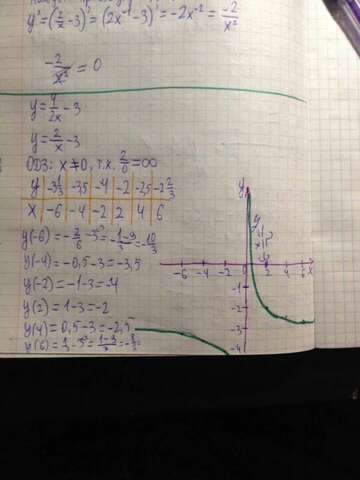 y' = (2/x - 3)' = (2x⁻¹ - 3)' = -2x⁻² = -2/x²
-2/x² = 0
y = 4/2x - 3
y = 2/x - 3
ОДЗ: x ≠ 0, т.к. 2/0 = ∞
y -3 1/3 -3,5 -4 -2 -2,5 -2 2/3
x -6 -4 -2 2 4 6
y(-6) = -2/6 - 3 = -1/3 - 3 = -10/3
y(-4) = -0,5 - 3 = -3,5
y(-2) = -1 - 3 = -4
y(2) = 1 - 3 = -2
y(4) = 0,5 - 3 = -2,5
y(6) = 1/3 - 3 =
y
-6 -4 -2 0 2 4 6 x
-1
-2
-3
-4